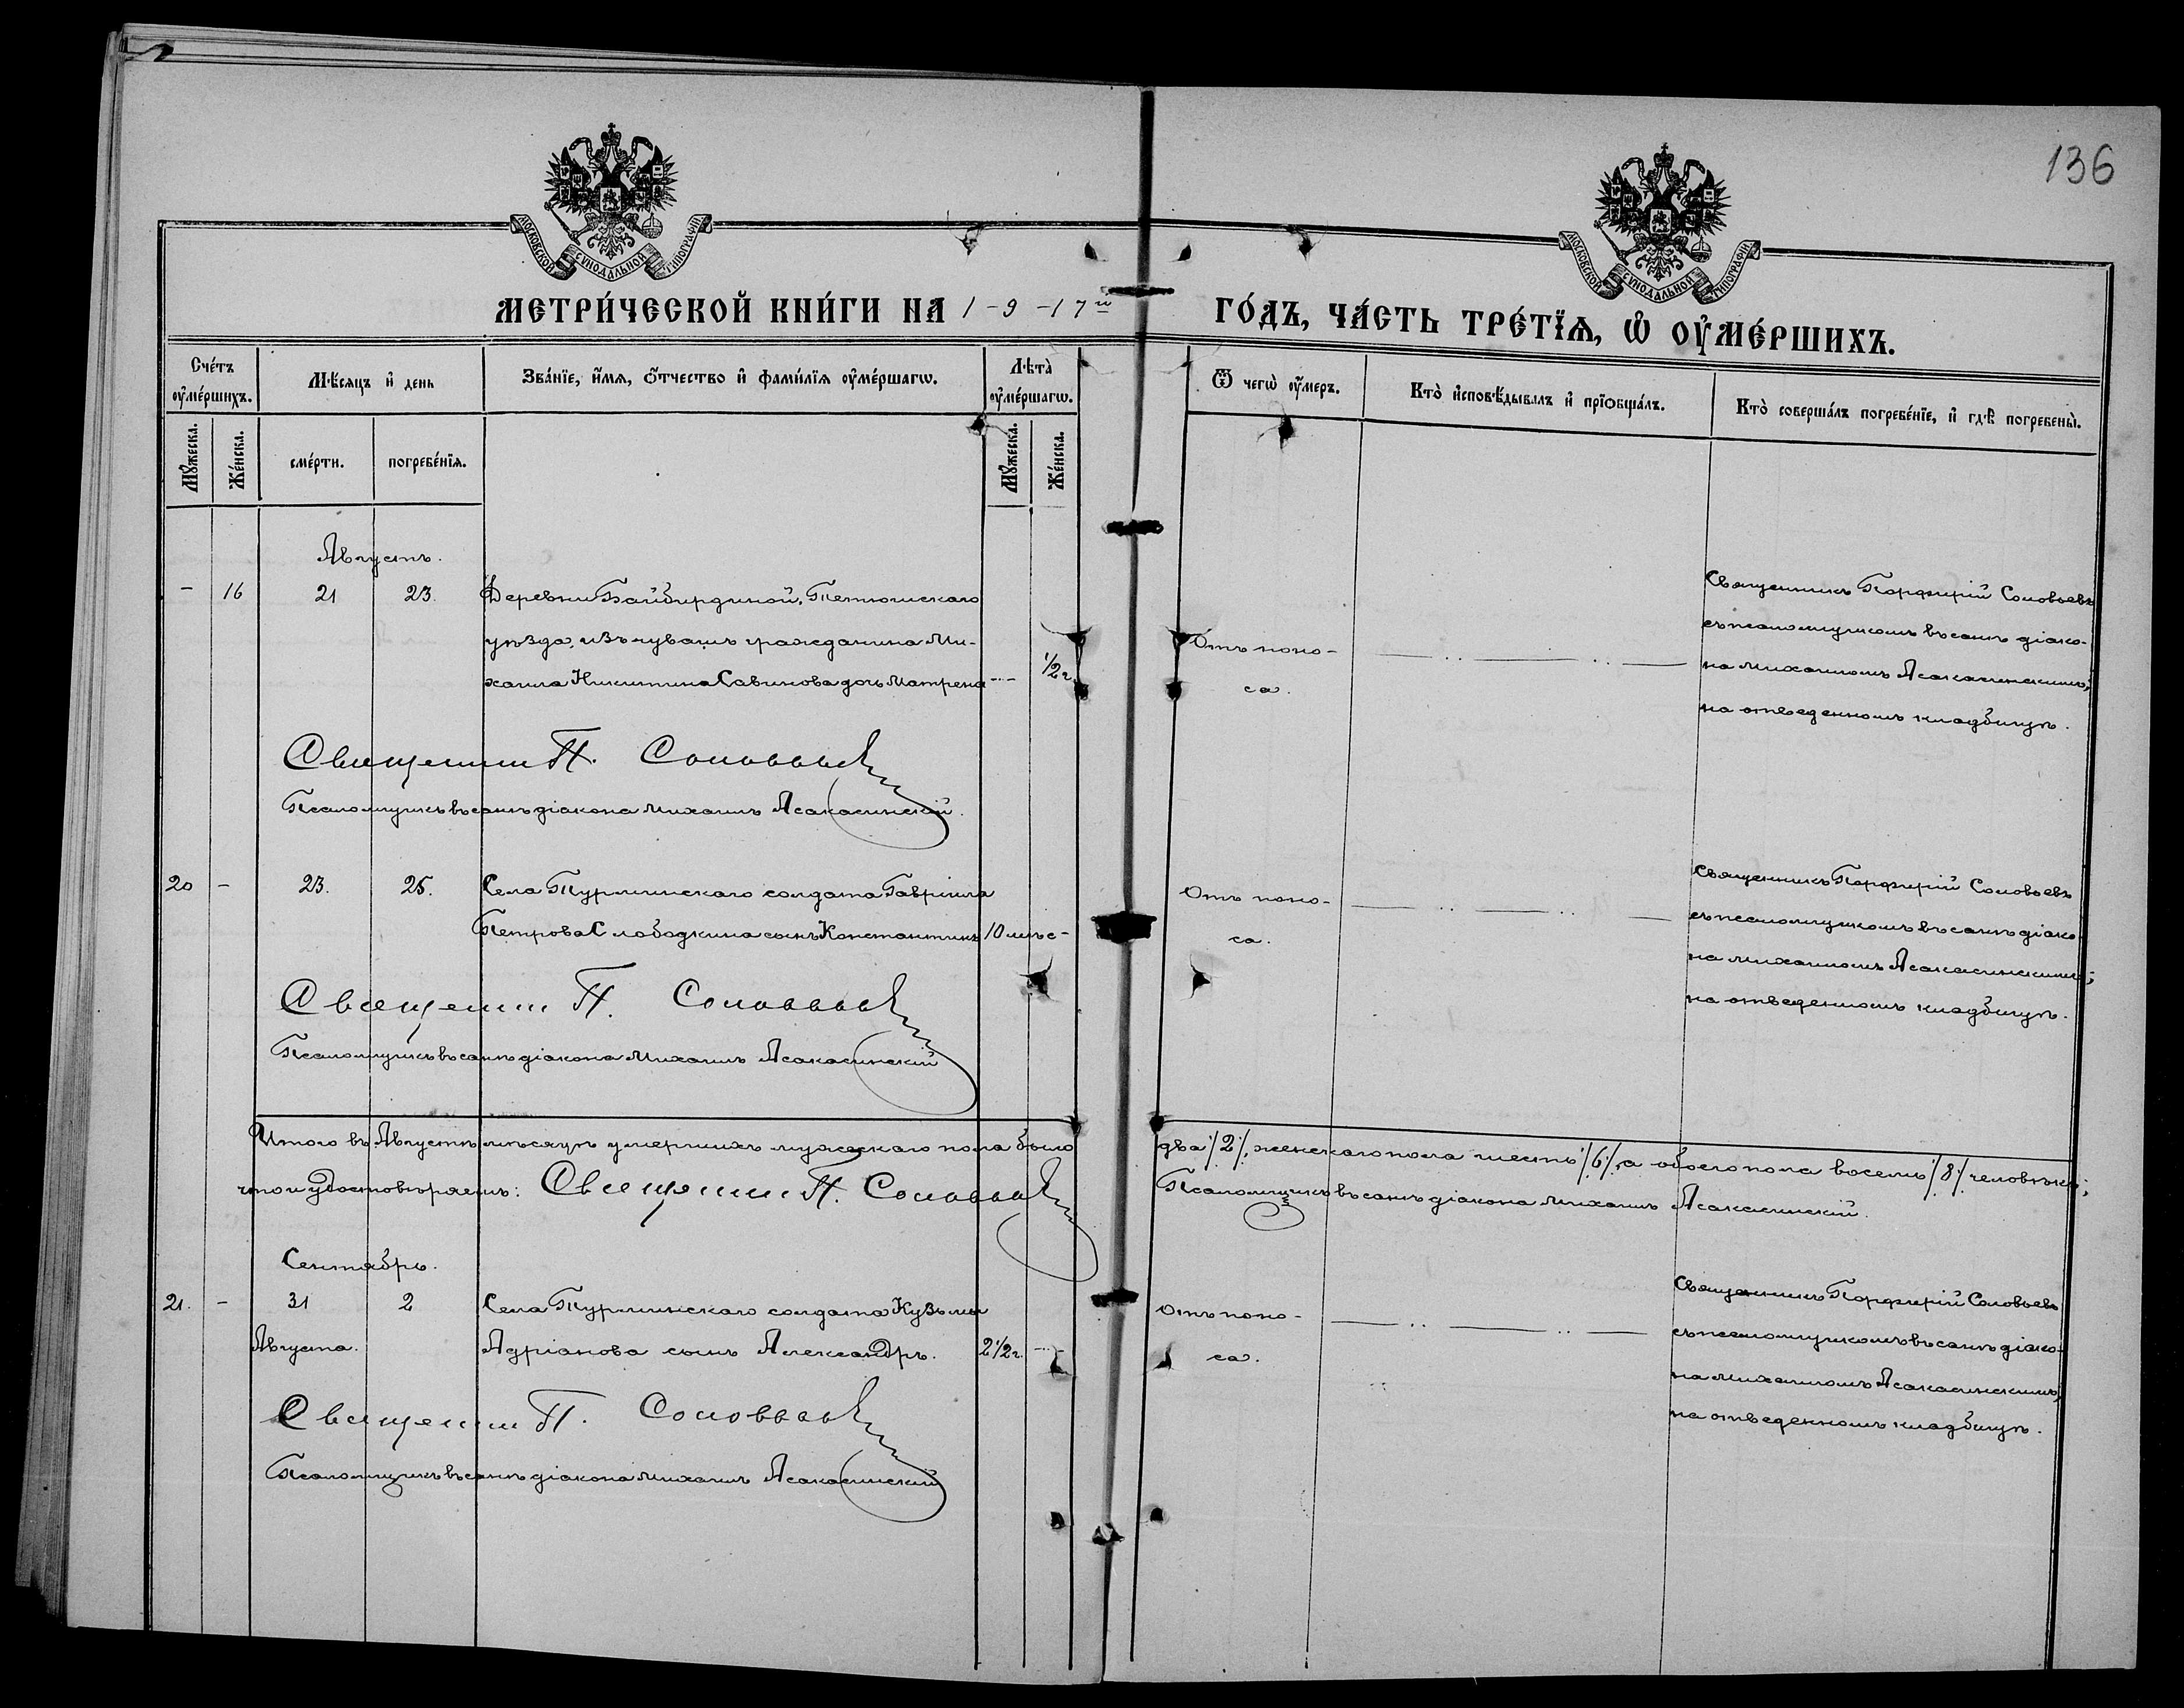 136
МОСКОВСКОЙ СУНОДАЛЬНОЙ ТИПОГРАФІИ
МОСКОВСКОЙ СУНОДАЛЬНОЙ ТИПОГРАФІИ
МЕТРИ́ЧЕСКОЙ КНИ́ГИ НА 1-9-17й ГО́ДЪ, ЧА́СТЬ ТРЕ́ТЇѦ, Ѡ ОУ҆МЕ́РШИХЪ.
Сче́тъ оу҆ме́ршихъ.
Мѣ́сяцъ и҆ день
Зва́нїе, и҆́мя, ѻ҆́тчество и҆ фами́лїя оу҆ме́ршагѡ.
Лѣта̀ оу҆ме́ршагѡ.
Ѿ чегѡ̀ оу҆́меръ.
Кто̀ и҆сповѣ́дывалъ и҆ прїобща́лъ.
Кто̀ соверша́лъ погребе́нїе, и҆ гдѣ̀ погребены̀.
Мꙋ́жеска.
Же́нска.
сме́рти.
погребе́нїя.
Мꙋ́жеска.
Же́нска.
Августъ.
- 16 21 23. Деревни Байбирдиной, Тетюшскаго
уѣзда, изъ чувашъ гражданина Ми-
хаила Никитина Савинова дочь Матрена - 1/2 г.
Отъ поно-
са.
Священникъ Порфирій Соловьевъ
съ псаломщикомъ въ санѣ діако-
на Михаиломъ Асакасинскимъ;
на отведенномъ кладбищѣ.
Священник П. Соловьев
Псаломщикъ въ санѣ діакона Михаилъ Асакасинскій.
20 - 23. 25. Села Турминскаго солдата Гавріила
Петрова Слободкина сынъ Константинъ 10 мѣс -
Отъ поно-
са.
Священникъ Порфирій Соловьевъ
съ псаломщикомъ въ санѣ діако-
на Михаиломъ Асакасинскимъ;
на отведенномъ кладбищѣ.
Священник П. Соловьев
Псаломщикъ въ санѣ діакона Михаилъ Асакасинскій
Итого въ Августѣ мѣсяцѣ умершихъ мужескаго пола было два /2/, женскаго пола шесть /6/, а обоего пола восемь /8/ человѣкъ;
что и удостовѣряемъ: Священник П. Соловьев Псаломщикъ въ санѣ діакона Михаилъ Асакасинскій.
Сентябрь.
21. - 31 2 Села Турминскаго солдата Кузьмы
Августа. Адріанова сынъ Александръ. 2 1/2 г. -
Отъ поно-
са.
Священникъ Порфирій Соловьевъ
съ псаломщикомъ въ санѣ діако-
на Михаиломъ Асакасинскимъ,
на отведенномъ кладбищѣ.
Священник П. Соловьев
Псаломщикъ въ санѣ діакона Михаилъ Асакасинскій